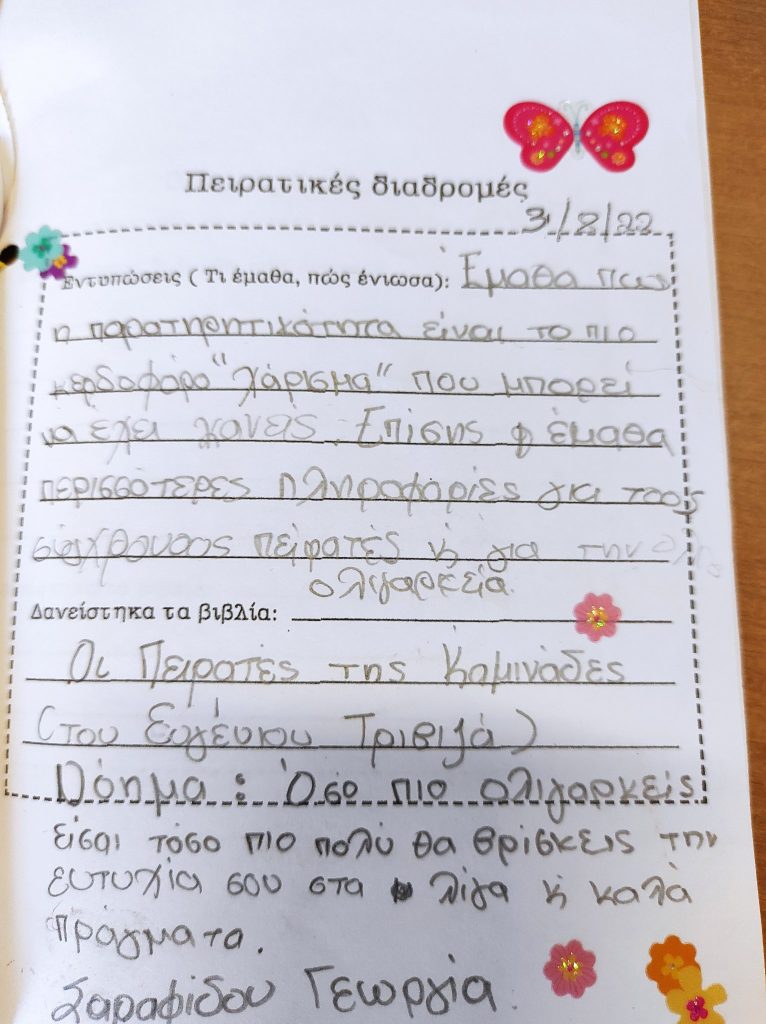 Πειρατικές διαδρομές
3/8/22
Εντυπώσεις ( Τι έμαθα, πώς ένιωσα): Έμαθα πως
η παρατηρητικότητα είναι το πιο
κερδοφόρο "χάρισμα" που μπορεί
να έχει κανείς. Επίσης έμαθα
περισσότερες πληροφορίες για τους
σύγχρονους πειρατές κ για την
ολιγαρκεία.
Δανείστηκα τα βιβλία:
Οι Πειρατές της Καμινάδες
(του Ευγένιου Τριβιζά)
Νόημα : Όσο πιο ολιγαρκείς
είσαι τόσο πιο πολύ θα βρίσκεις την
ευτυχία σου στα λίγα κ καλά
πράγματα.
Σαραφίδου Γεωργία.